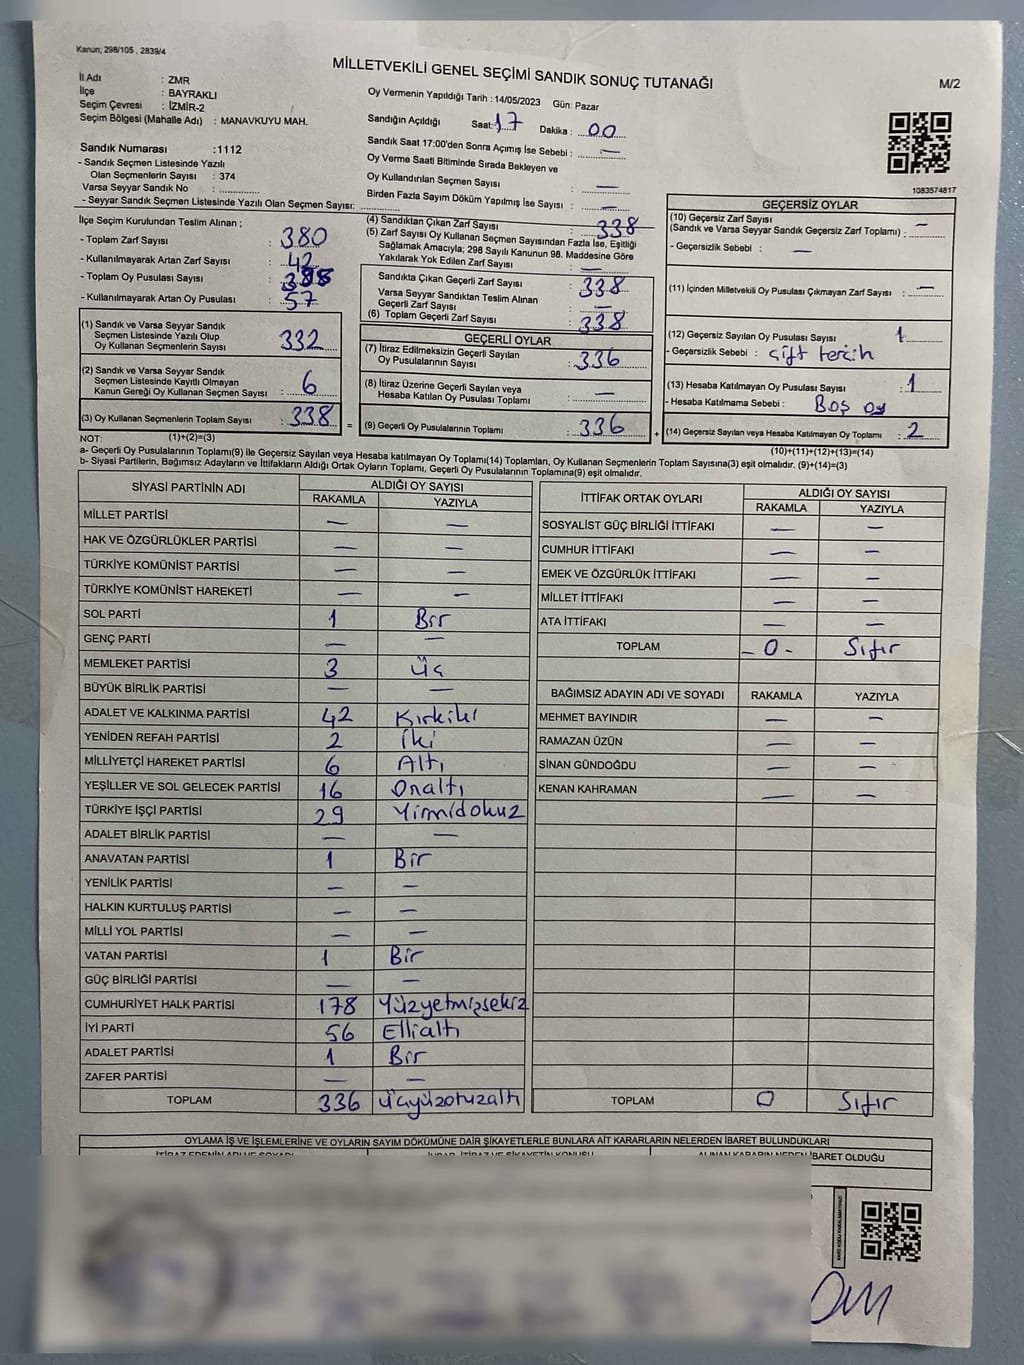 Kanun; 298/105 , 2839/4
MİLLETVEKİLİ GENEL SEÇİMİ SANDIK SONUÇ TUTANAĞI
M/2
İl Adı : ZMR
İlçe : BAYRAKLI
Seçim Çevresi : İZMİR-2
Seçim Bölgesi (Mahalle Adı) : MANAVKUYU MAH.
Oy Vermenin Yapıldığı Tarih : 14/05/2023 Gün: Pazar
Sandığın Açıldığı Saat: 17 Dakika : 00
Sandık Saat 17:00'den Sonra Açımış İse Sebebi : —
Oy Verme Saati Bitiminde Sırada Bekleyen ve
Oy Kullandırılan Seçmen Sayısı : —
Birden Fazla Sayım Döküm Yapılmış İse Sayısı : —
Sandık Numarası :1112
- Sandık Seçmen Listesinde Yazılı
Olan Seçmenlerin Sayısı : 374
Varsa Seyyar Sandık No : ..............
- Seyyar Sandık Seçmen Listesinde Yazılı Olan Seçmen Sayısı: ..............
1083574817
İlçe Seçim Kurulundan Teslim Alınan ;
- Toplam Zarf Sayısı : 380
- Kullanılmayarak Artan Zarf Sayısı : 42
- Toplam Oy Pusulası Sayısı :
- Kullanılmayarak Artan Oy Pusulası : 57
(1) Sandık ve Varsa Seyyar Sandık
Seçmen Listesinde Yazılı Olup
Oy Kullanan Seçmenlerin Sayısı : 332
(2) Sandık ve Varsa Seyyar Sandık
Seçmen Listesinde Kayıtlı Olmayan
Kanun Gereği Oy Kullanan Seçmen Sayısı : 6
(3) Oy Kullanan Seçmenlerin Toplam Sayısı : 338 =
(4) Sandıktan Çıkan Zarf Sayısı : 338
(5) Zarf Sayısı Oy Kullanan Seçmen Sayısından Fazla İse, Eşitliği
Sağlamak Amacıyla; 298 Sayılı Kanunun 98. Maddesine Göre
Yakılarak Yok Edilen Zarf Sayısı : —
Sandıkta Çıkan Geçerli Zarf Sayısı : 338
Varsa Seyyar Sandıktan Teslim Alınan
Geçerli Zarf Sayısı : —
(6) Toplam Geçerli Zarf Sayısı : 338
GEÇERLİ OYLAR
(7) İtiraz Edilmeksizin Geçerli Sayılan
Oy Pusulalarının Sayısı : 336
(8) İtiraz Üzerine Geçerli Sayılan veya
Hesaba Katılan Oy Pusulası Toplamı : —
(9) Geçerli Oy Pusulalarının Toplamı : 336 +
GEÇERSİZ OYLAR
(10) Geçersiz Zarf Sayısı
(Sandık ve Varsa Seyyar Sandık Geçersiz Zarf Toplamı) : —
- Geçersizlik Sebebi : —
(11) İçinden Milletvekili Oy Pusulası Çıkmayan Zarf Sayısı : —
(12) Geçersiz Sayılan Oy Pusulası Sayısı : 1
- Geçersizlik Sebebi : Çift tercih
(13) Hesaba Katılmayan Oy Pusulası Sayısı : 1
- Hesaba Katılmama Sebebi : Boş oy
(14) Geçersiz Sayılan veya Hesaba Katılmayan Oy Toplamı : 2
NOT: (1)+(2)=(3)
(10)+(11)+(12)+(13)=(14)
a- Geçerli Oy Pusulalarının Toplamı(9) ile Geçersiz Sayılan veya Hesaba katılmayan Oy Toplamı(14) Toplamları, Oy Kullanan Seçmenlerin Toplam Sayısına(3) eşit olmalıdır. (9)+(14)=(3)
b- Siyasi Partilerin, Bağımsız Adayların ve İttifakların Aldığı Ortak Oyların Toplamı, Geçerli Oy Pusulalarının Toplamına(9) eşit olmalıdır.
SİYASİ PARTİNİN ADI ALDIĞI OY SAYISI
RAKAMLA YAZIYLA
MİLLET PARTİSİ — —
HAK VE ÖZGÜRLÜKLER PARTİSİ — —
TÜRKİYE KOMÜNİST PARTİSİ — —
TÜRKİYE KOMÜNİST HAREKETİ — —
SOL PARTİ 1 Bir
GENÇ PARTİ — —
MEMLEKET PARTİSİ 3 Üç
BÜYÜK BİRLİK PARTİSİ — —
ADALET VE KALKINMA PARTİSİ 42 Kırkiki
YENİDEN REFAH PARTİSİ 2 İki
MİLLİYETÇİ HAREKET PARTİSİ 6 Altı
YEŞİLLER VE SOL GELECEK PARTİSİ 16 Onaltı
TÜRKİYE İŞÇİ PARTİSİ 29 Yirmidokuz
ADALET BİRLİK PARTİSİ — —
ANAVATAN PARTİSİ 1 Bir
YENİLİK PARTİSİ — —
HALKIN KURTULUŞ PARTİSİ — —
MİLLİ YOL PARTİSİ — —
VATAN PARTİSİ 1 Bir
GÜÇ BİRLİĞİ PARTİSİ — —
CUMHURİYET HALK PARTİSİ 178 Yüzyetmişsekiz
İYİ PARTİ 56 Ellialtı
ADALET PARTİSİ 1 Bir
ZAFER PARTİSİ — —
TOPLAM 336 Üçyüzotuzaltı
İTTİFAK ORTAK OYLARI ALDIĞI OY SAYISI
RAKAMLA YAZIYLA
SOSYALİST GÜÇ BİRLİĞİ İTTİFAKI — —
CUMHUR İTTİFAKI — —
EMEK VE ÖZGÜRLÜK İTTİFAKI — —
MİLLET İTTİFAKI — —
ATA İTTİFAKI — —
TOPLAM - 0 - Sıfır
BAĞIMSIZ ADAYIN ADI VE SOYADI RAKAMLA YAZIYLA
MEHMET BAYINDIR — —
RAMAZAN ÜZÜN — —
SİNAN GÜNDOĞDU — —
KENAN KAHRAMAN — —
TOPLAM 0 Sıfır
OYLAMA İŞ VE İŞLEMLERİNE VE OYLARIN SAYIM DÖKÜMÜNE DAİR ŞİKAYETLERLE BUNLARA AİT KARARLARIN NELERDEN İBARET BULUNDUKLARI
İTİRAZ EDENİN ADI VE SOYADI İTİRAZ VE ŞİKAYETİN KONUSU ALINAN KARARIN NEDEN İBARET OLDUĞU